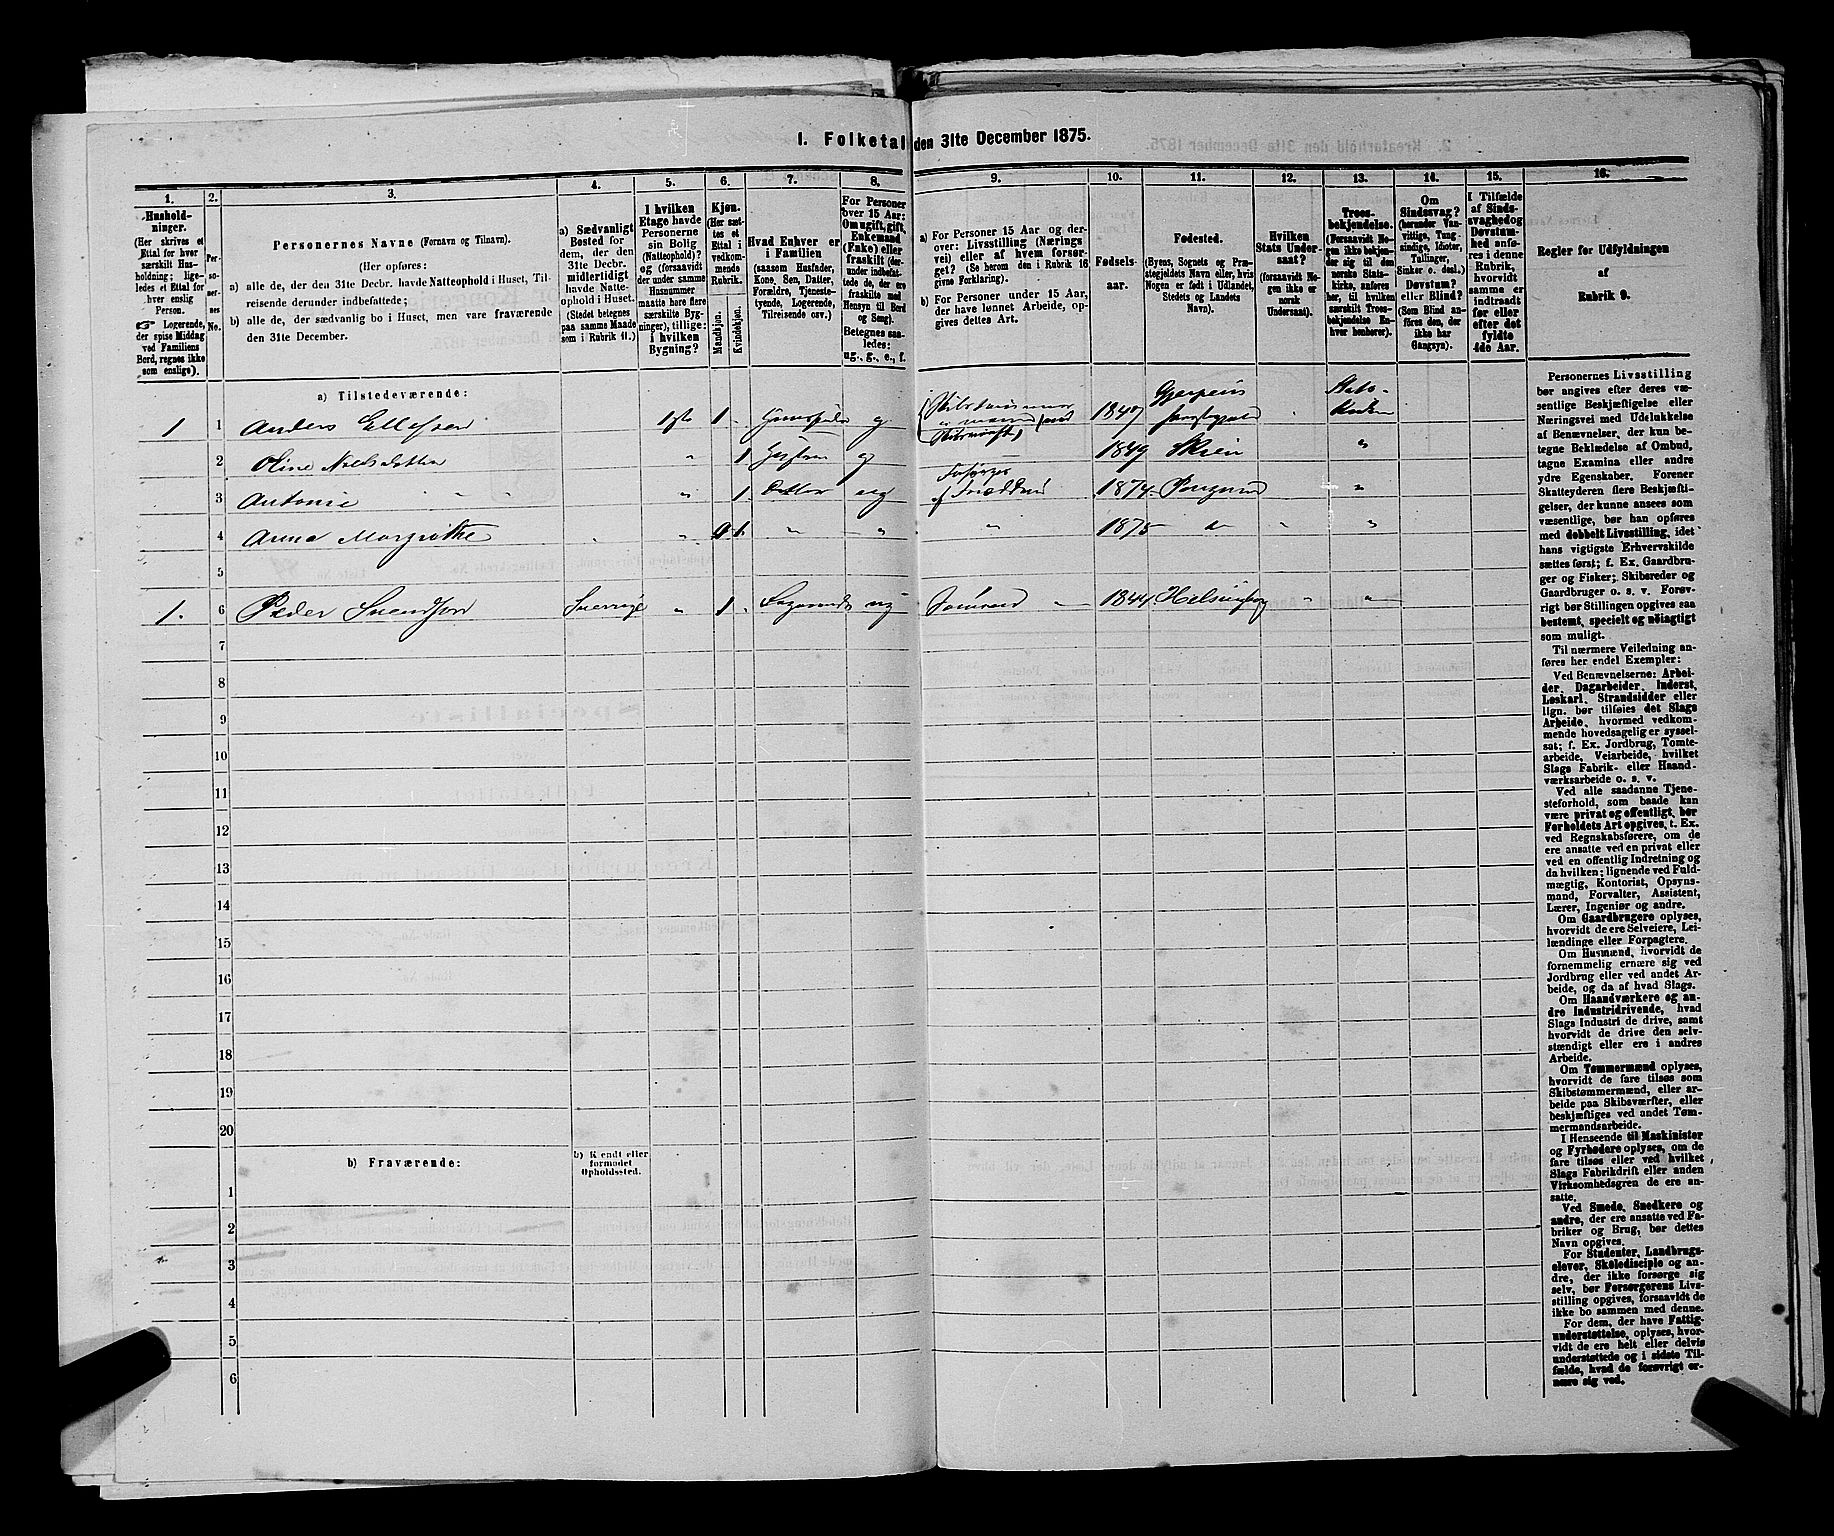 1. Folketal den 31te December 1875.
1.
2.
3.
4.
5.
6.
7.
8.
9.
10.
11.
12.
13.
14.
15.
16.
Husholdninger.
(Her skrives et
Ettal for hver
særskilt Husholdning;
ligeledes
et Ettal for
hver enslig
Person.
☞ Logerende,
der spise Middag
ved Familiens
Bord, regnes ikke
som enslige).
Personernes No.
Personernes Navne (Fornavn og Tilnavn).
(Her opføres:
a) alle de, der den 31te Decbr. havde Natteophold i Huset, Tilreisende
derunder indbefattede;
b) alle de, der sædvanlig bo i Huset, men vare fraværende
den 31te December.
a) Sædvanligt
Bosted for
dem, der den
31te Decbr.
midlertidigt
havde Natteophold
i Huset.
(Stedet betegnes
paa samme Maade
som i Rubrik 11.)
I hvilken
Etage havde
Personerne
sin Bolig
(Natteophold)?
og (forsaavidt
der under samme
Husnummer
maatte høre flere
særskilte Bygninger),
tillige:
i hvilken
Bygning?
Kjøn.
(Her sættes
et
Ettal i
vedkommende
Rubrik.
Mandkjøn.
Kvindekjøn.
Hvad Enhver er
i Familien
(saasom Husfader,
Kone, Søn, Datter,
Forældre, Tjenestetyende,
Logerende,
Tilreisende osv.)
For Personer
over 15 Aar:
Om ugift, gift,
Enkemand
(Enke) eller
fraskilt (derunder
indbefattede
de, der ere
fraskilte med
Hensyn til Bord
og Seng).
Betegnes saaledes:
ug., g., e., f.
a) For Personer 15 Aar og derover:
Livsstilling (Næringsvei)
eller af hvem forsørget?
(Se herom den i Rubrik 16
givne Forklaring).
b) For Personer under 15 Aar,
der have lønnet Arbeide, opgives
dettes Art.
Fødselsaar.
Fødested.
(Byens, Sognets og Præstegjeldets
Navn eller, hvis
Nogen er født i Udlandet,
Stedets og Landets
Navn).
Hvilken
Stats Undersaat?
(forsaavidt Nogen
ikke er
norsk
Undersaat).
Troesbekjendelse.
(Forsaavidt Nogen
ikke bekjender
sig til den
norske Statskirke,
anføres
her, til hvilken
særskilt Troesbekjendelse
Enhver
henhører).
Om
Sindssvag?
(herunder Vanvittige,
Tungsindige,
Idioter,
Tullinger,
Sinker o. desl.)
Døvstum?
eller Blind?
(Som Blind anføres
den, der
ikke har
Gangsyn).
I Tilfælde
af Sindssvaghed
og
Døvstumhed
anføres
i denne
Rubrik,
hvorvidt
samme er
indtraadt
før eller
efter det
fyldte
4de Aar.
Regler for Udfyldningen
af
Rubrik 9.
a) Tilstedeværende:
1 1 Anders Ellefsen 1ste 1 g 1847 Gjerpens Stats-
2 Oline Nielsdatter " 1 g 1849 Skien "
Forsørges
3 Antonie " " " 1 Datter ug af 1874 Porsgrund "
4 Anna Margrethe " " 1 " " " 1875 "
5
1. 6 Peder Svendsen Sverrige " 1 Logerende ug 1844 Helsingborg " "
7
8
9
10
11
12
13
14
15
16
17
18
19
20
b) Fraværende:
b) Kjendt eller
formodet
Opholdssted.
1
2
3
4
5
6
Personernes Livsstilling
bør angives efter deres væsentlige
Beskjæftigelse eller
Næringsvei med Udelukkelse
af Benævnelser, der kun betegne
Beklædelse af Ombud,
tagne Examina eller andre
ydre Egenskaber. Forener
Skatteyderen flere Beskjæftigelser,
der kunne ansees som
væsentlige, bør han opføres
med dobbelt Livsstilling, idet
hans vigtigste Erhvervskilde
sættes først; f. Ex. Gaardbruger
og Fisker; Skibsreder og
Gaardbruger o. s. v. Forøvrigt
bør Stillingen opgives saa
bestemt, specielt og nøiagtigt
som muligt.
Til nærmere Veiledning anføres
her endel Exempler:
Ved Benævnelserne: Arbeider,
Dagarbeider, Inderst,
Løskarl, Strandsidder eller
lign. bør tilføies det Slags
Arbeide, hvormed vedkommende
hovedsagelig er sysselsat;
f. Ex. Jordbrug, Tomtearbeide,
Veiarbeide, hvilket
Slags Fabrik- eller Haandværksarbeide
o. s. v.
Ved alle saadanne Tjenesteforhold,
som baade kan
være privat og offentligt, bør
Forholdets Art opgives, t. Ex.
ved Regnskabsførere, om de
ere ansatte ved en privat eller
ved en offentlig Indretning og
da hvilken; lignende ved Fuldmægtig,
Kontorist, Opsynsmand,
Forvalter, Assistent,
Lærer, Ingeniør og andre.
Om Gaardbrugere oplyses,
hvorvidt de ere Selveiere, Leilændinge
eller Forpagtere.
Om Husmænd, hvorvidt de
fornemmelig ernære sig ved
Jordbrug eller ved andet Arbeide,
og da af hvad Slags.
Om Haandværkere og andre
Industridrivende, hvad
Slags Industri de drive, samt
hvorvidt de drive den selvstændigt
eller ere i andres
Arbeide.
Om Tømmermænd oplyses,
hvorvidt de fare tilsøs som
Skibstømmermænd, eller arbeide
paa Skibsværfter, eller
beskjæftiges ved andet Tømmermandsarbeide.
I Henseende til Maskinister
og Fyrbødere oplyses, om de
fare tilsøs eller ved hvilket
Slags Fabrikdrift eller anden
Virksomhedsgren de ere ansatte.
Ved Smede, Snedkere og
andre, der ere ansatte ved Fabriker
og Brug, bør dettes
Navn opgives.
For Studenter, Landbrugselever,
Skoledisciple og andre,
der ikke forsørge sig
selv, bør Forsørgerens Livsstilling
opgives, forsaavidt de
ikke bo sammen med denne.
For dem, der have Fattigunderstøttelse,
oplyses, hvorvidt
de ere helt eller delvis
understøttede og i sidste Tilfælde,
hvad de forøvrigt ernære
sig ved.